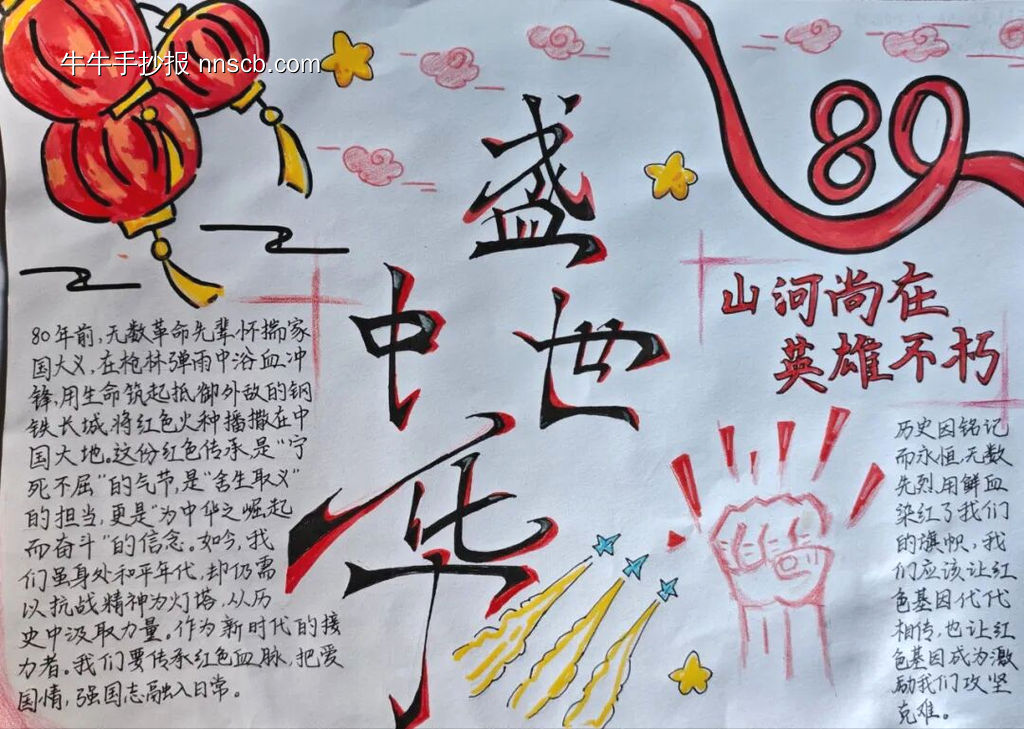 牛牛手抄报 nnscb.com
80
盛世
中华
山河尚在
英雄不朽
80年前,无数革命先辈怀揣家
国大义,在枪林弹雨中浴血冲
锋,用生命筑起抵御外敌的钢
铁长城,将红色火种播撒在中
国大地。这份红色传承,是"宁
死不屈"的气节,是"舍生取义"
的担当,更是"为中华之崛起
而奋斗"的信念。如今,我
们虽身处和平年代,却仍需
以抗战精神为灯塔,从历
史中汲取力量。作为新时代的接
力者。我们要传承红色血脉,把爱
国情,强国志融入日常。
历史因铭记
而永恒,无数
先烈用鲜血
染红了我们
的旗帜,我
们应该让红
色基因代代
相传,也让红
色基因成为激
励我们攻坚
克难。